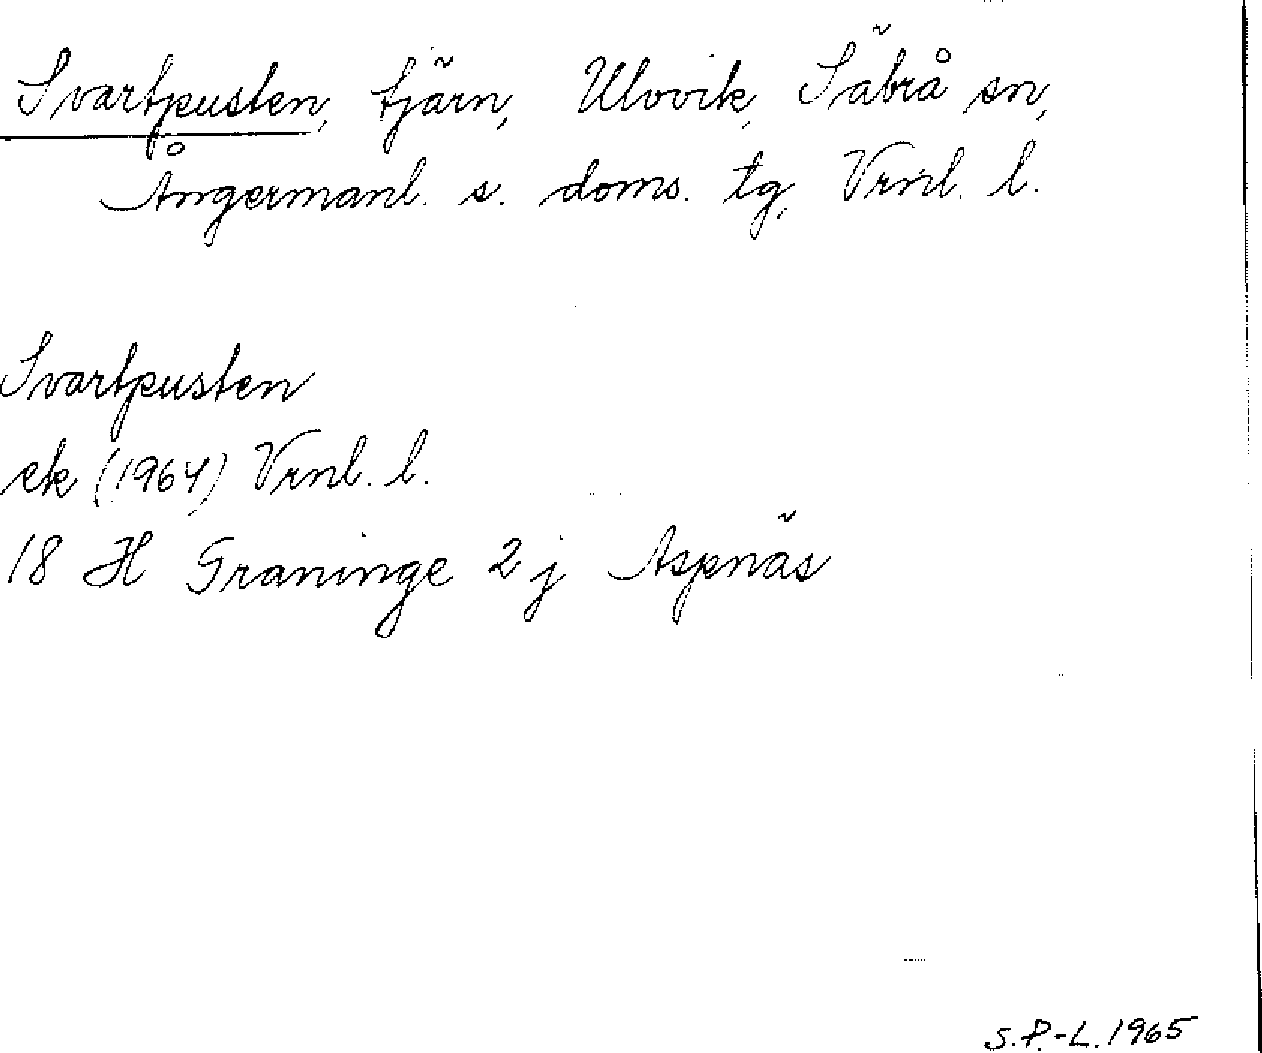 Svartpusten, tjärn, Ulvvik, Säbrå sn,
Ångermanl. s. doms. tg, Vrnl. l.
Svartpusten
ek (1964) Vrnl. l.
18 H Graninge 2 j Aspnäs
S.P.-L. 1965